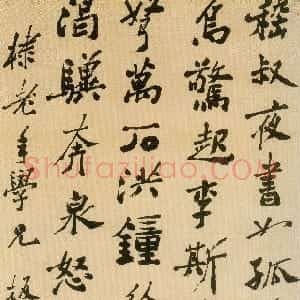 嵇叔夜書如孤
烏驚起李斯
弩萬石洪鐘
渴驥奔泉怒
棣老年學兄板
Shufaziliao.com